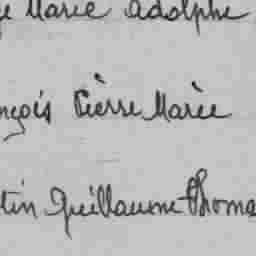 Marie Adolphe
Pierre Marie
Guillaume Thoma